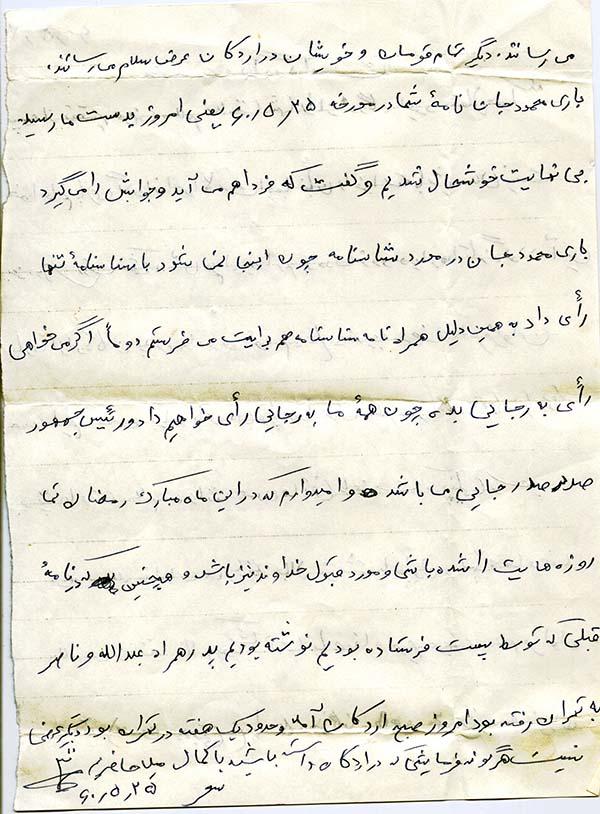 می رسانند. دیگر تمام قومان و خویشان در اردکان عرض سلام می رسانند.
باری محمود جان نامهٔ شما در مورخه ۶۰/۵/۲۵ یعنی امروز بدست ما رسید
بی نهایت خوشحال شدیم و گفت که فردا هم می آید و جوابش را می گیرد
باری محمود جان در مورد شناسنامه چون اینجا نمی شود با شناسنامهٔ تنها
رأی داد به همین دلیل همراه نامه شناسنامه هم برایت می فرستم دوماً اگر می خواهی
رأی به رجایی بده چون همهٔ ما به رجایی رأی خواهیم داد و رئیس جمهور
صد در صد رجایی می باشد و امیدوارم که در این ماه مبارک رمضان
روزه هایت را باشی و مورد قبول خداوند نیز باشد و همچنین که در نامهٔ
قبلی که توسط پست فرستاده بودیم نوشته بودیم پدر همراه عبدالله و ناصر
به تهران رفته بود امروز صبح اردکان آمد و حدود یک هفته در تهران بود دیگر عرضی
نیست هرگونه فرمایشی که در اردکان داشته باشید با کمال میل حاضریم
۶۰/۵/۲۵